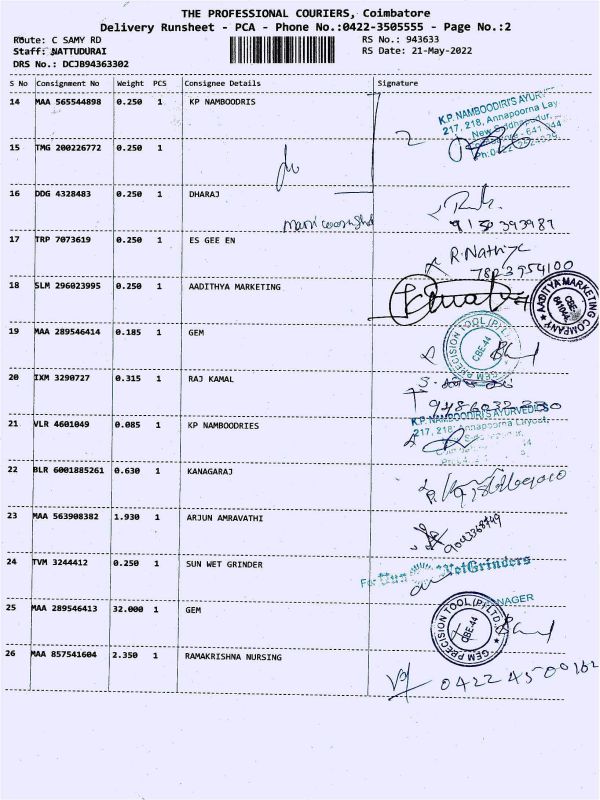 THE PROFESSIONAL COURIERS, Coimbatore
Delivery Runsheet - PCA - Phone No.:0422-3505555 - Page No.:2
Route: C SAMY RD
RS No.: 943633
Staff: NATTUDURAI
RS Date: 21-May-2022
DRS No.: DCJB94363302
S No Consignment No Weight PCS Consignee Details Signature
14 MAA 565544898 0.250 1 KP NAMBOODRIS
K.P. NAMBOODIRI'S AYUR
217, 218, Annapoorna Lay
15 TMG 200226772 0.250 1
16 DDG 4328483 0.250 1 DHARAJ
17 TRP 7073619 0.250 1 ES GEE EN
R. Nathiya
7823954100
18 SLM 296023995 0.250 1 AADITHYA MARKETING
AADITYA MARKETING COMPANY
CBE-
19 MAA 289546414 0.185 1 GEM
GEM PRECISION TOOL (P) LTD.
CBE-44
20 IXM 3290727 0.315 1 RAJ KAMAL
21 VLR 4601049 0.085 1 KP NAMBOODRIES
K.P. NAMBOODIRI'S AYURVEDICS
217, 218, Annapoorna
22 BLR 6001885261 0.630 1 KANAGARAJ
23 MAA 563908382 1.930 1 ARJUN AMRAVATHI
24 TVM 3244412 0.250 1 SUN WET GRINDER
For Sun WetGrinders
25 MAA 289546413 32.000 1 GEM
MANAGER
GEM PRECISION TOOL (P) LTD.
CBE-44
26 MAA 857541604 2.350 1 RAMAKRISHNA NURSING
0422 4500162